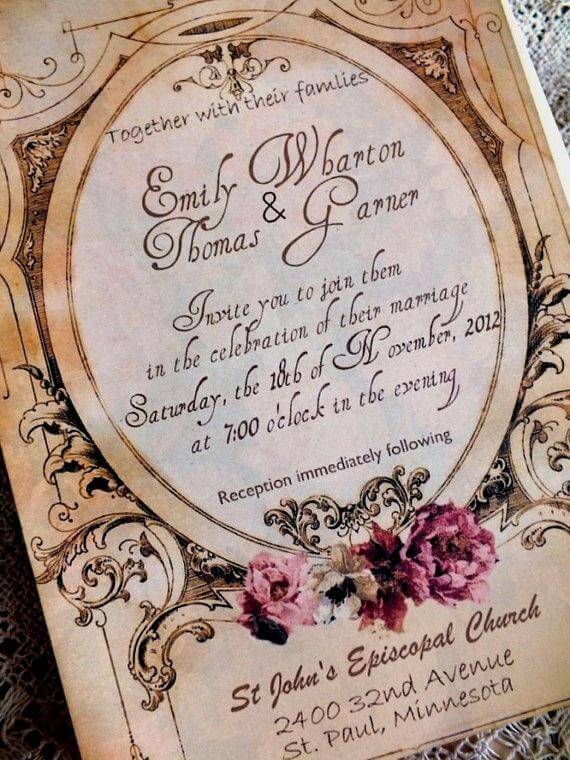 Together with their famlies
Emily Wharton
&
Thomas Garner
Invite you to join them
in the celebration of their marriage
Saturday, the 18th of November, 2012
at 7:00 o'clock in the evening
Reception immediately following
St John's Episcopal Church
2400 32nd Avenue
St. Paul, Minnesota